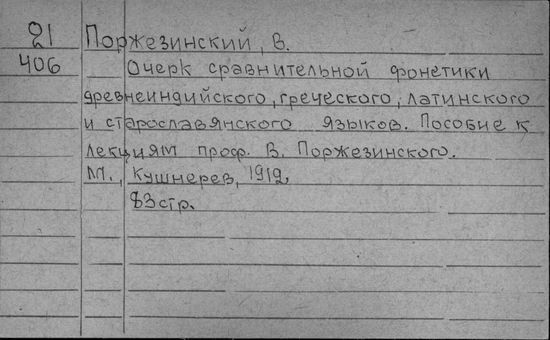 21
406
Поржезинский, В.
Очерк сравнительной фонетики
древнеиндийского, греческого, латинского
и старославянского языков. Пособие к
лекциям проф. В. Поржезинского.
М., Кушнерев, 1912.
83 стр.